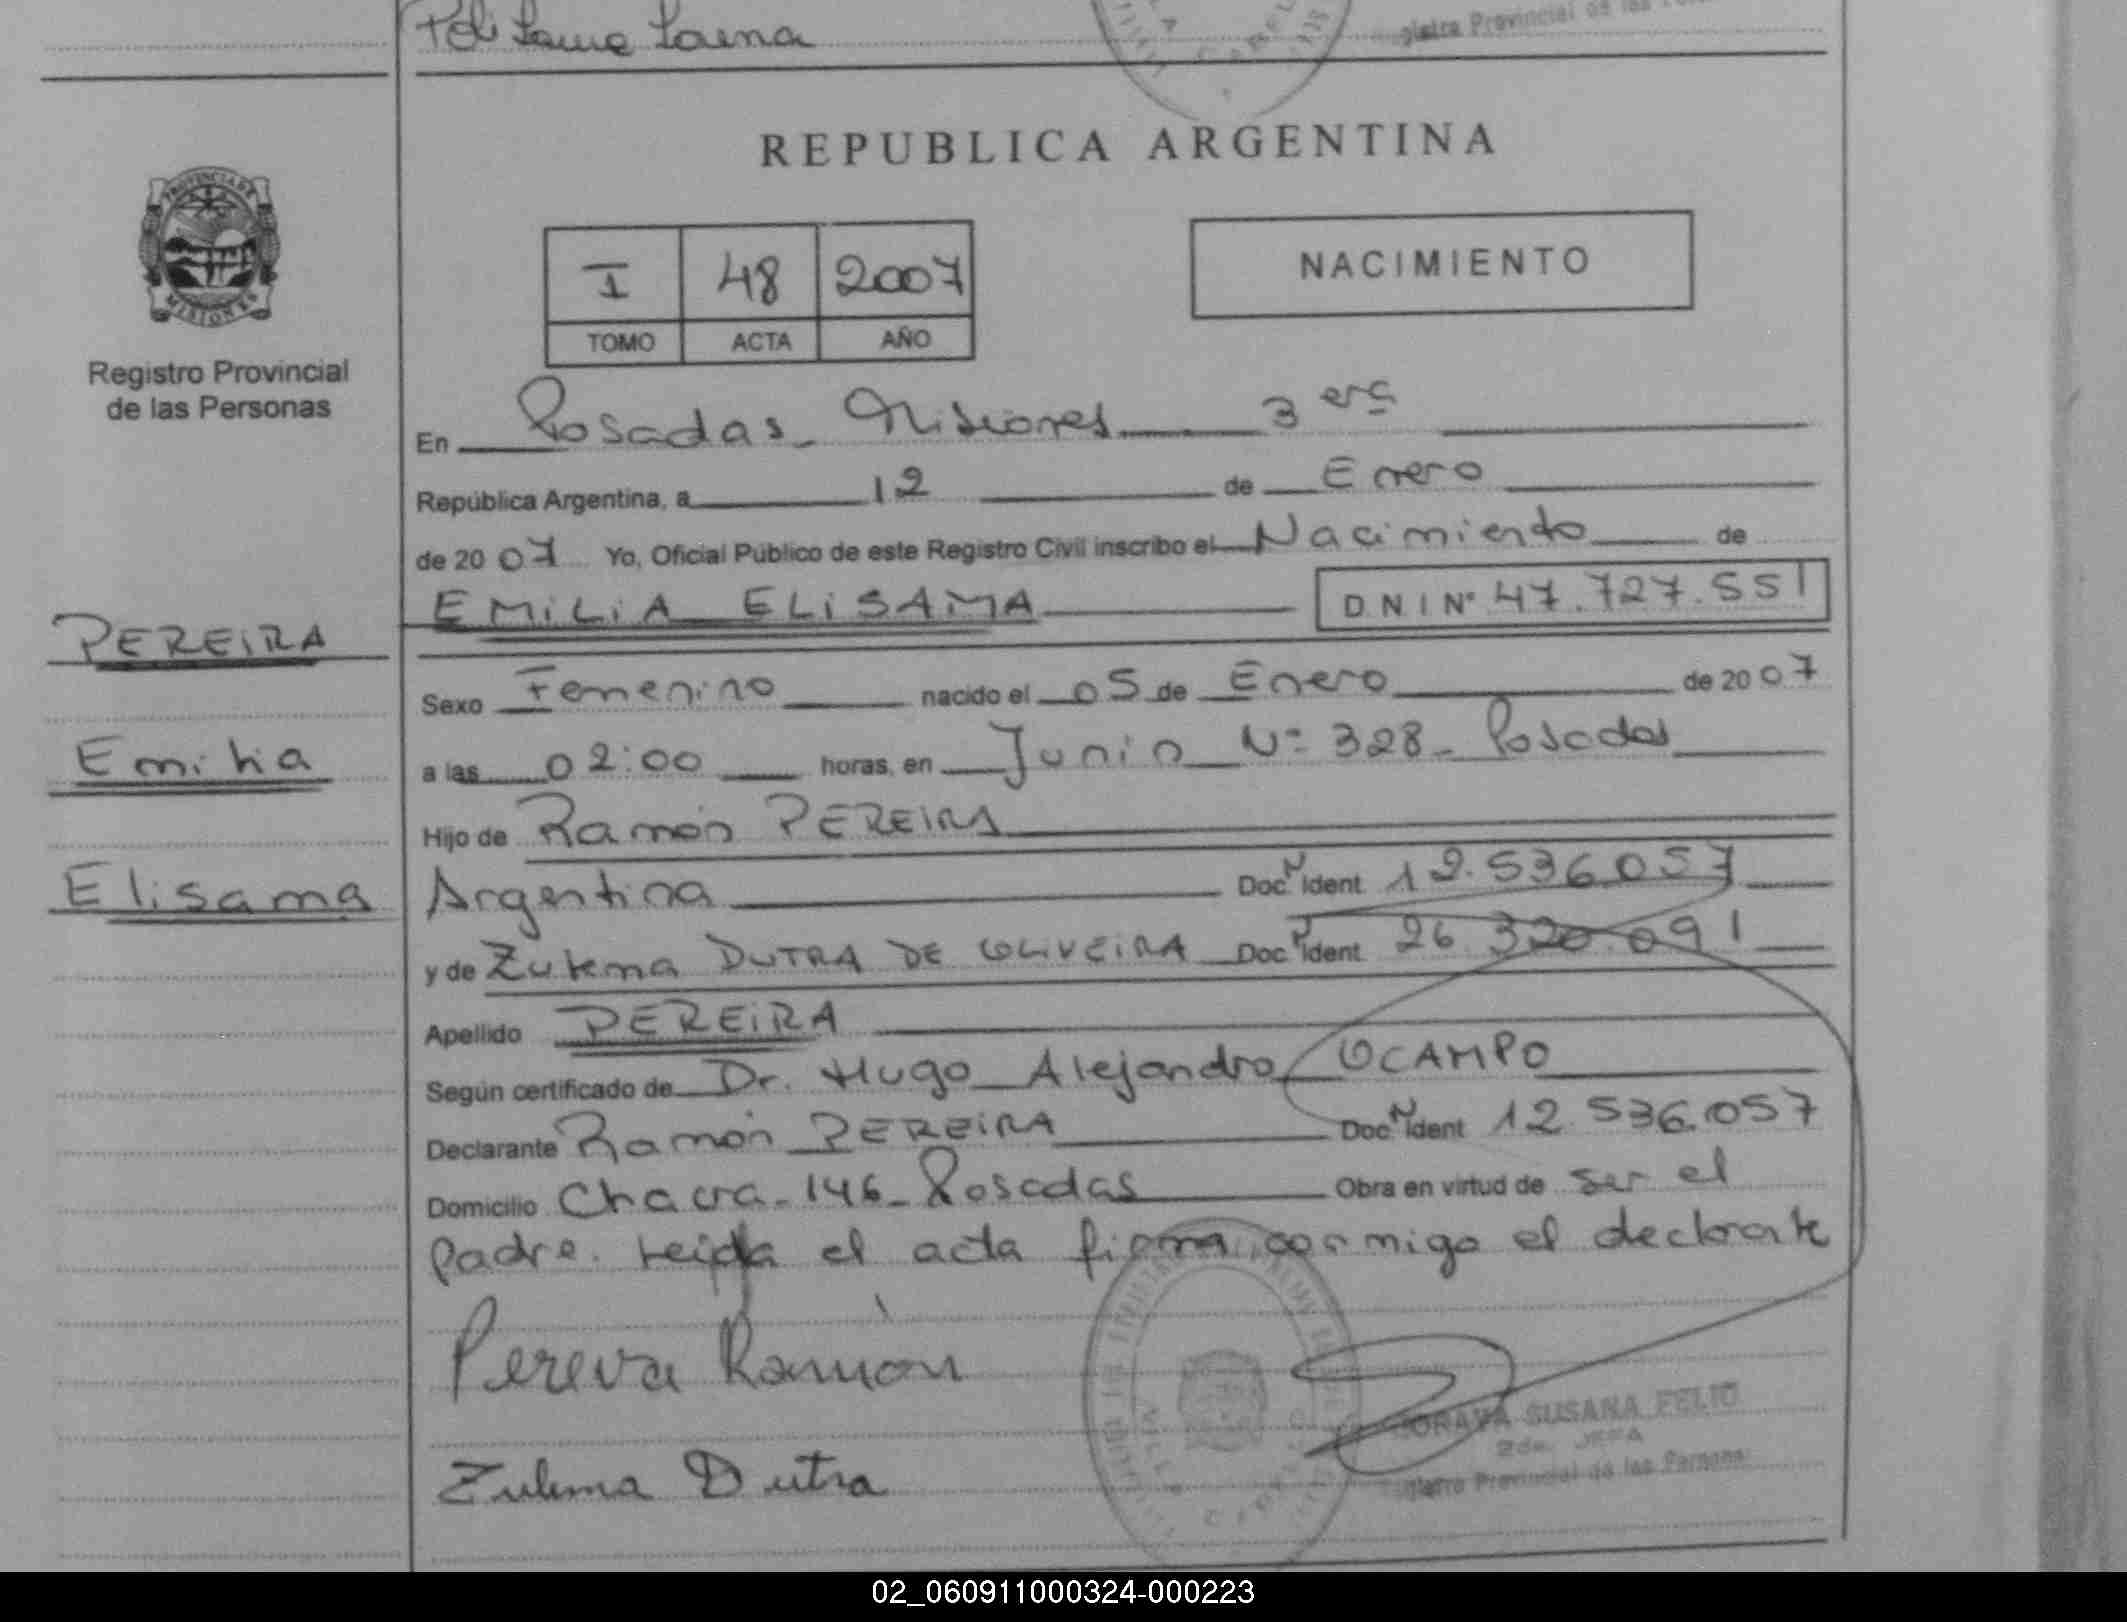 REPUBLICA ARGENTINA
PROVINCIA DE
MISIONES
Registro Provincial
de las Personas
I 48 2007
TOMO ACTA AÑO
NACIMIENTO
En Posadas - Misiones 3 era
República Argentina, a 12 de Enero
de 2007 Yo, Oficial Público de este Registro Civil inscribo el Nacimiento de
EMILIA ELISAMA DNI Nº 47.727.551
PEREIRA
Emilia
Elisama
Sexo Femenino nacido el 05 de Enero de 2007
a las 02:00 horas, en Junin Nº 328 - Posadas
Hijo de Ramón PEREIRA
Argentina Doc. N Ident 12.536.057
y de Zulema DUTRA DE OLIVEIRA Doc. N Ident 26.320.091
Apellido PEREIRA
Según certificado de Dr. Hugo Alejandro OCAMPO
Declarante Ramón PEREIRA Doc. N Ident 12.536.057
Domicilio Chacra - 146 - Posadas Obra en virtud de ser el
padre. Leída el acta firma conmigo el declarante
Pereira Ramón
Zulema Dutra
SORAYA SUSANA FELIO
2da. JEFA
Registro Provincial de las Personas
02_060911000324-000223